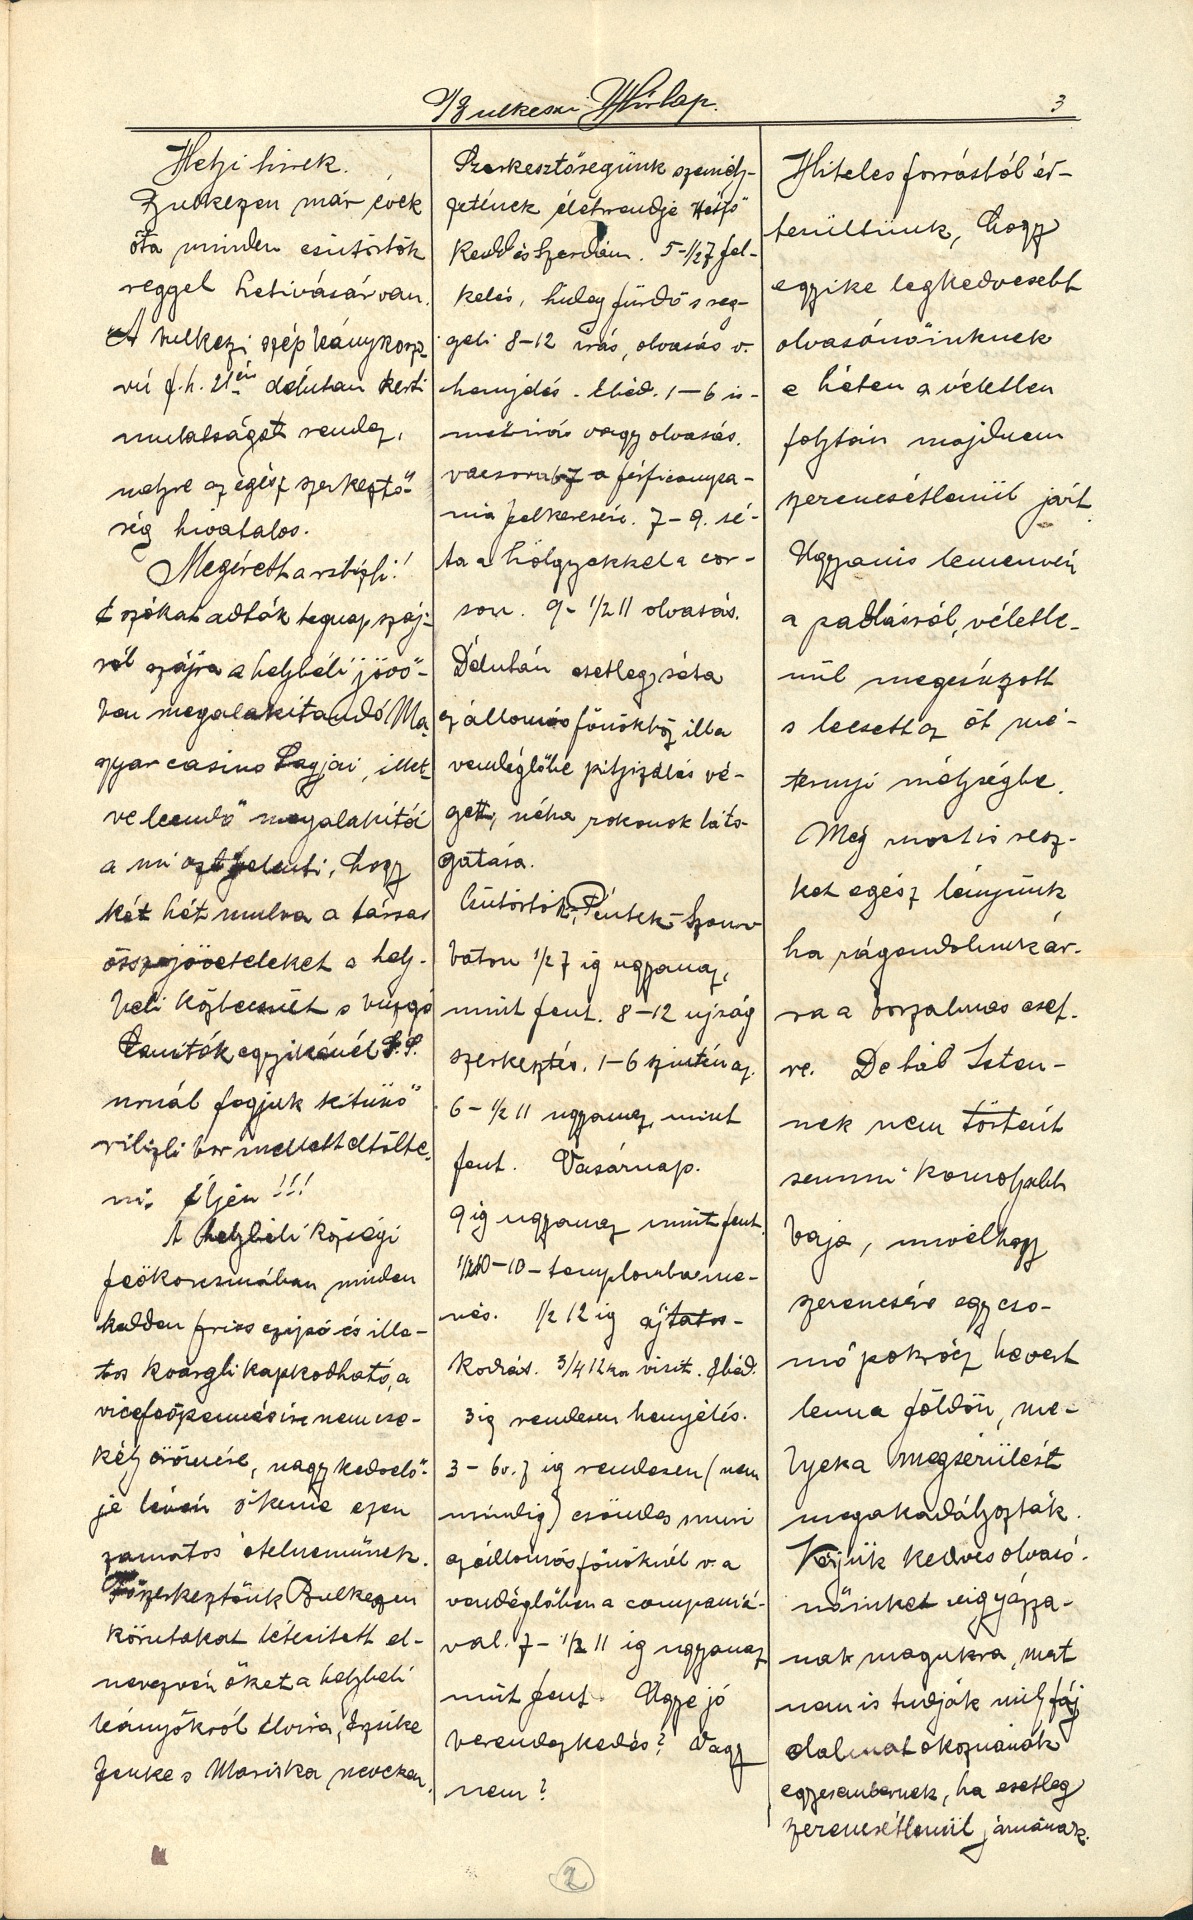 Bulkeszi Hirlap.
3
Helyi hirek.
Bulkeszen már évek
óta minden csütörtök
reggel hetivásár van.
A bulkeszi szép leánykosz-
rú f. h. 21én délután kerti
mulatságot rendez,
melyre az egész szerkesztő-
ség hivatalos.
Megérett a rslizli!
E szókat adták tegnap száj-
ról szájra a helybéli jövő-
ben megalakitandó Ma-
gyar casino tagjai, illet-
ve leendő megalakitói
a mi azt jelenti, hogy
két hét mulva a társas
összejöveteleket a hely-
beli közbecsült s buzgó
Tanitók egyikénél S. S.
urnál fogjuk kitünő
rilizli bor mellett eltölte-
ni. Éljen!!!
A helybeli községi
feökorcsmában minden
kedden friss czipó és illa-
tos kvargli kapkodható, a
nem cse-
kély örömére, nagy kedvelő-
je lévén őkeme ezen
zamatos ételnemünek.
Főszerkeztőnk Bulkeszen
körutakat létesitett el-
nevezvén őket a helybeli
leányokról Elvira, Erzsike
Jenke s Mariska neveken.
Szerkesztőségünk személy-
zetének életrendje Hétfő
Kedd és Szerdán. 5-1/2 7 fel-
kelés, hideg fürdő s reg-
geli 8-12 irás, olvasás v.
henyélés. Ebéd. 1-6 is-
mét irás vagy olvasás.
vacsora 6-7 a férficompa-
nia felkeresése. 7-9. sé-
ta a hölgyekkel a cor-
son. 9- 1/2 11 olvasás.
Délután esetleg séta
az állomás főnökhöz illa
vendéglőbe pityizálás vé-
gett, néha rokonok láto-
gatása.
Csütörtök, Péntek-Szom-
baton 1/2 7 ig ugyanaz,
mint fent. 8-12 ujság
szerkesztés. 1-6 szintén az.
6- 1/2 11 ugyanaz, mint
fent. Vasárnap.
9 ig ugyanaz mint fent.
1/2 10-10-templomba me-
nés. 1/2 12 ig ájtatos-
kodás. 3/4 12 kor visit. Ebéd.
3 ig rendesen henyélés.
3-6 v. 7 ig rendesen (nem
mindig) csöndes muri
az állomás főnöknél v. a
vendéglőben a companiá-
val. 7- 1/2 11 ig ugyanaz
mint fent. Ugye jó
berendezkedés? Vagy
nem?
Hiteles forrásból ér-
tesültünk, hogy
egyike legkedvesebb
olvasónőinknek
e héten a véletlen
folytán majdnem
szerencsétlenül járt.
Ugyanis lemenvén
a padlásról, véletle-
nül megcsúszott
s leesett az öt mé-
ternyi mélységbe.
Még most is resz-
ket egész lényünk
ha rágondolunk ár-
ra a borzalmas eset-
re. De hál Isten-
nek nem történt
semmi komolyabb
baja, mivelhogy
szerencsére egy cso-
mó pokrócz hevert
lenn a földön, me-
lyek a megsérülést
megakadályozták.
Kérjük kedves olvasó-
nőinket vigyázza-
nak magukra, mert
nem is tudják mily fáj
dalmat okoznának
egyesembernek, ha esetleg
szerencsétlenül járnának.
2